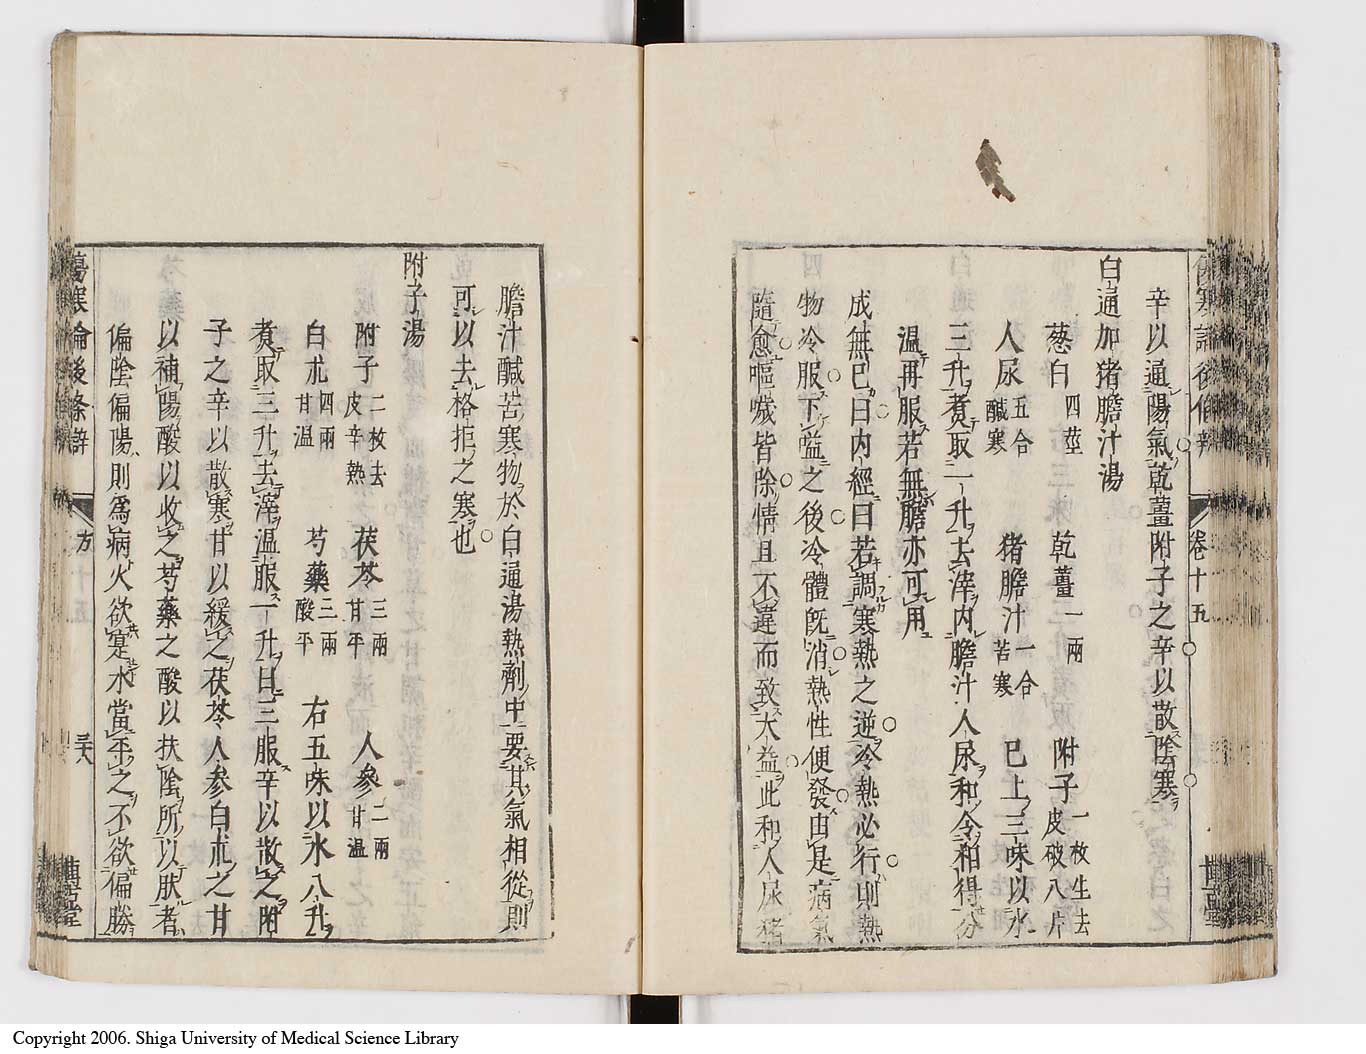 辛以通陽氣乾薑附子之辛以散陰寒
白通加猪膽汁湯
葱白四莖 乾薑一兩 附子一枚生去皮破八片
人尿五合鹹寒 猪膽汁一合苦寒 已上三味以水
三升煑取一升去滓内膽汁人尿和令相得分
温再服若無膽亦可用
成無已曰内經曰若調寒熱之逆冷熱必行則熱
物冷服下嗌之後冷體既消熱性便發由是病氣
隨愈嘔噦皆除情且不違而致大益此和人尿猪
膽汁鹹苦寒物於白通湯熱劑中要其氣相從則
可以去格拒之寒也
附子湯
附子二枚去皮辛熱 茯苓三兩甘平 人參二兩甘温
白朮四兩甘温 芍藥三兩酸平 右五味以水八升
煑取三升去滓温服一升日三服辛以散之附
子之辛以散寒甘以緩之茯苓人參白朮之甘
以補陽酸以收之芍藥之酸以扶陰所以肰者
偏陰偏陽則爲病火欲寔水當平之不欲偏勝
傷寒論後條辨
方
卷十五
Copyright 2006. Shiga University of Medical Science Library